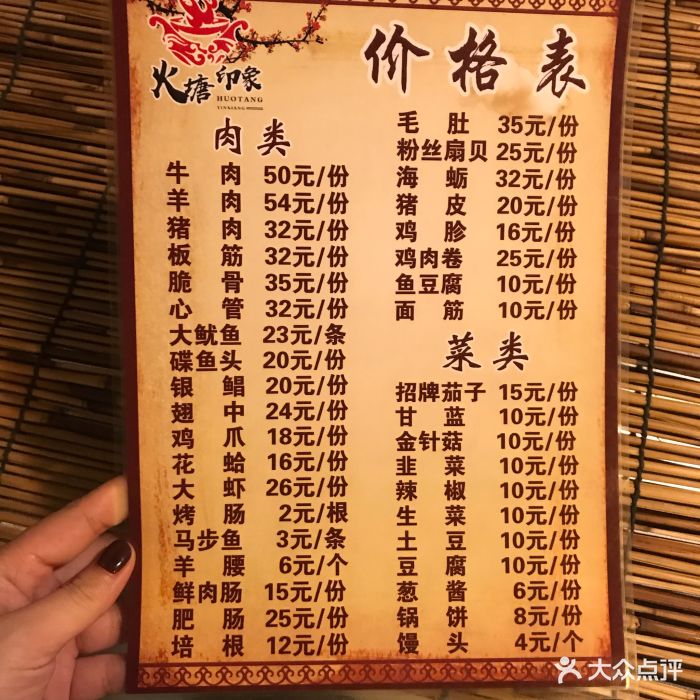 火塘印象
HUOTANG
YINXIANG
价格表
肉类
牛肉 50元/份
羊肉 54元/份
猪肉 32元/份
板筋 32元/份
脆骨 35元/份
心管 32元/份
大鱿鱼 23元/条
碟鱼头 20元/份
银鲳 20元/份
翅中 24元/份
鸡爪 18元/份
花蛤 16元/份
大虾 26元/份
烤肠 2元/根
马步鱼 3元/条
羊腰 6元/个
鲜肉肠 15元/份
肥肠 25元/份
培根 12元/份
毛肚 35元/份
粉丝扇贝 25元/份
海蛎 32元/份
猪皮 20元/份
鸡胗 16元/份
鸡肉卷 25元/份
鱼豆腐 10元/份
面筋 10元/份
菜类
招牌茄子 15元/份
甘蓝 10元/份
金针菇 10元/份
韭菜 10元/份
辣椒 10元/份
生菜 10元/份
土豆 10元/份
豆腐 10元/份
葱酱 6元/份
锅饼 8元/份
馒头 4元/个
大众点评